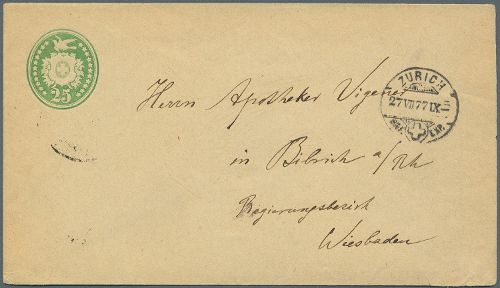 25
ZÜRICH
27 VII 77 IX
EXP.
Herrn Apotheker Vigener
in Bibrich a/Rh
Regierungsbezirk
Wiesbaden